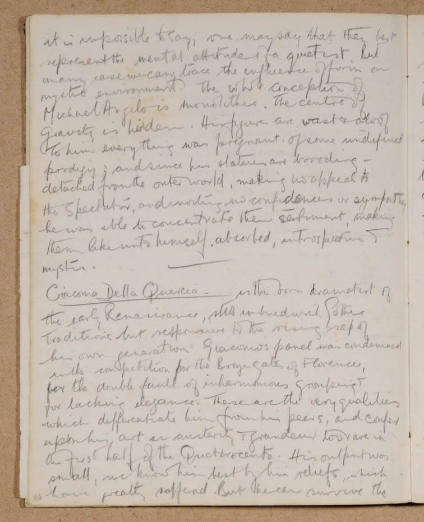 it is impossible to say, one may say that they best
represent the mental attitude of a quietist. But
in any case we can trace the influence of form on
mystic environment. The whole conception of
Michael Angelo is monolithic. The centre of
Gravity is hidden. His figures are vast & aloof
To him everything was pregnant of some undefined
prodigy; and since his statues are brooding -
detached from the outer world, making no appeal to
the Spectator, and inviting no confidences or sympathy
he was able to concentrate their sentiment, making
them like unto himself, absorbed, introspective &
mystic.
Giacomo Della Quercia is the born dramatist of
the early Renaissance, still imbued with Gothic
Traditions but responsive to the rising sap of
his own generation. Giacomo's panel was condemned
in the competition for the Bronze gates of Florence,
for the double fault of inharmonious grouping &
for lacking elegance. These are the very qualities
which differentiate him from his peers, and confer
upon his art an austerity & grandeur so rare in
the first half of the Quattrocento. His output was
small, we know him best by his reliefs, which
have greatly suffered. But the can survive the